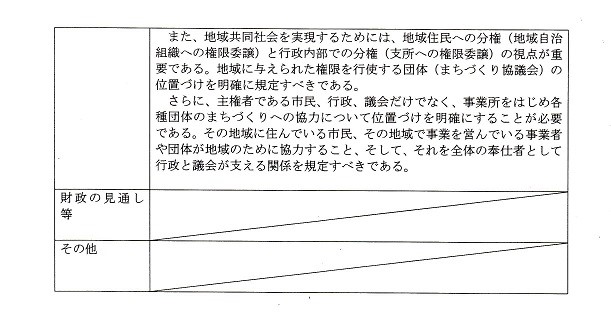 また、地域共同社会を実現するためには、地域住民への分権（地域自治
組織への権限委譲）と行政内部での分権（支所への権限委譲）の視点が重
要である。地域に与えられた権限を行使する団体（まちづくり協議会）の
位置づけを明確に規定すべきである。
さらに、主権者である市民、行政、議会だけでなく、事業所をはじめ各
種団体のまちづくりへの協力について位置づけを明確にすることが必要
である。その地域に住んでいる市民、その地域で事業を営んでいる事業者
や団体が地域のために協力すること、そして、それを全体の奉仕者として
行政と議会が支える関係を規定すべきである。
財政の見通し
等
その他